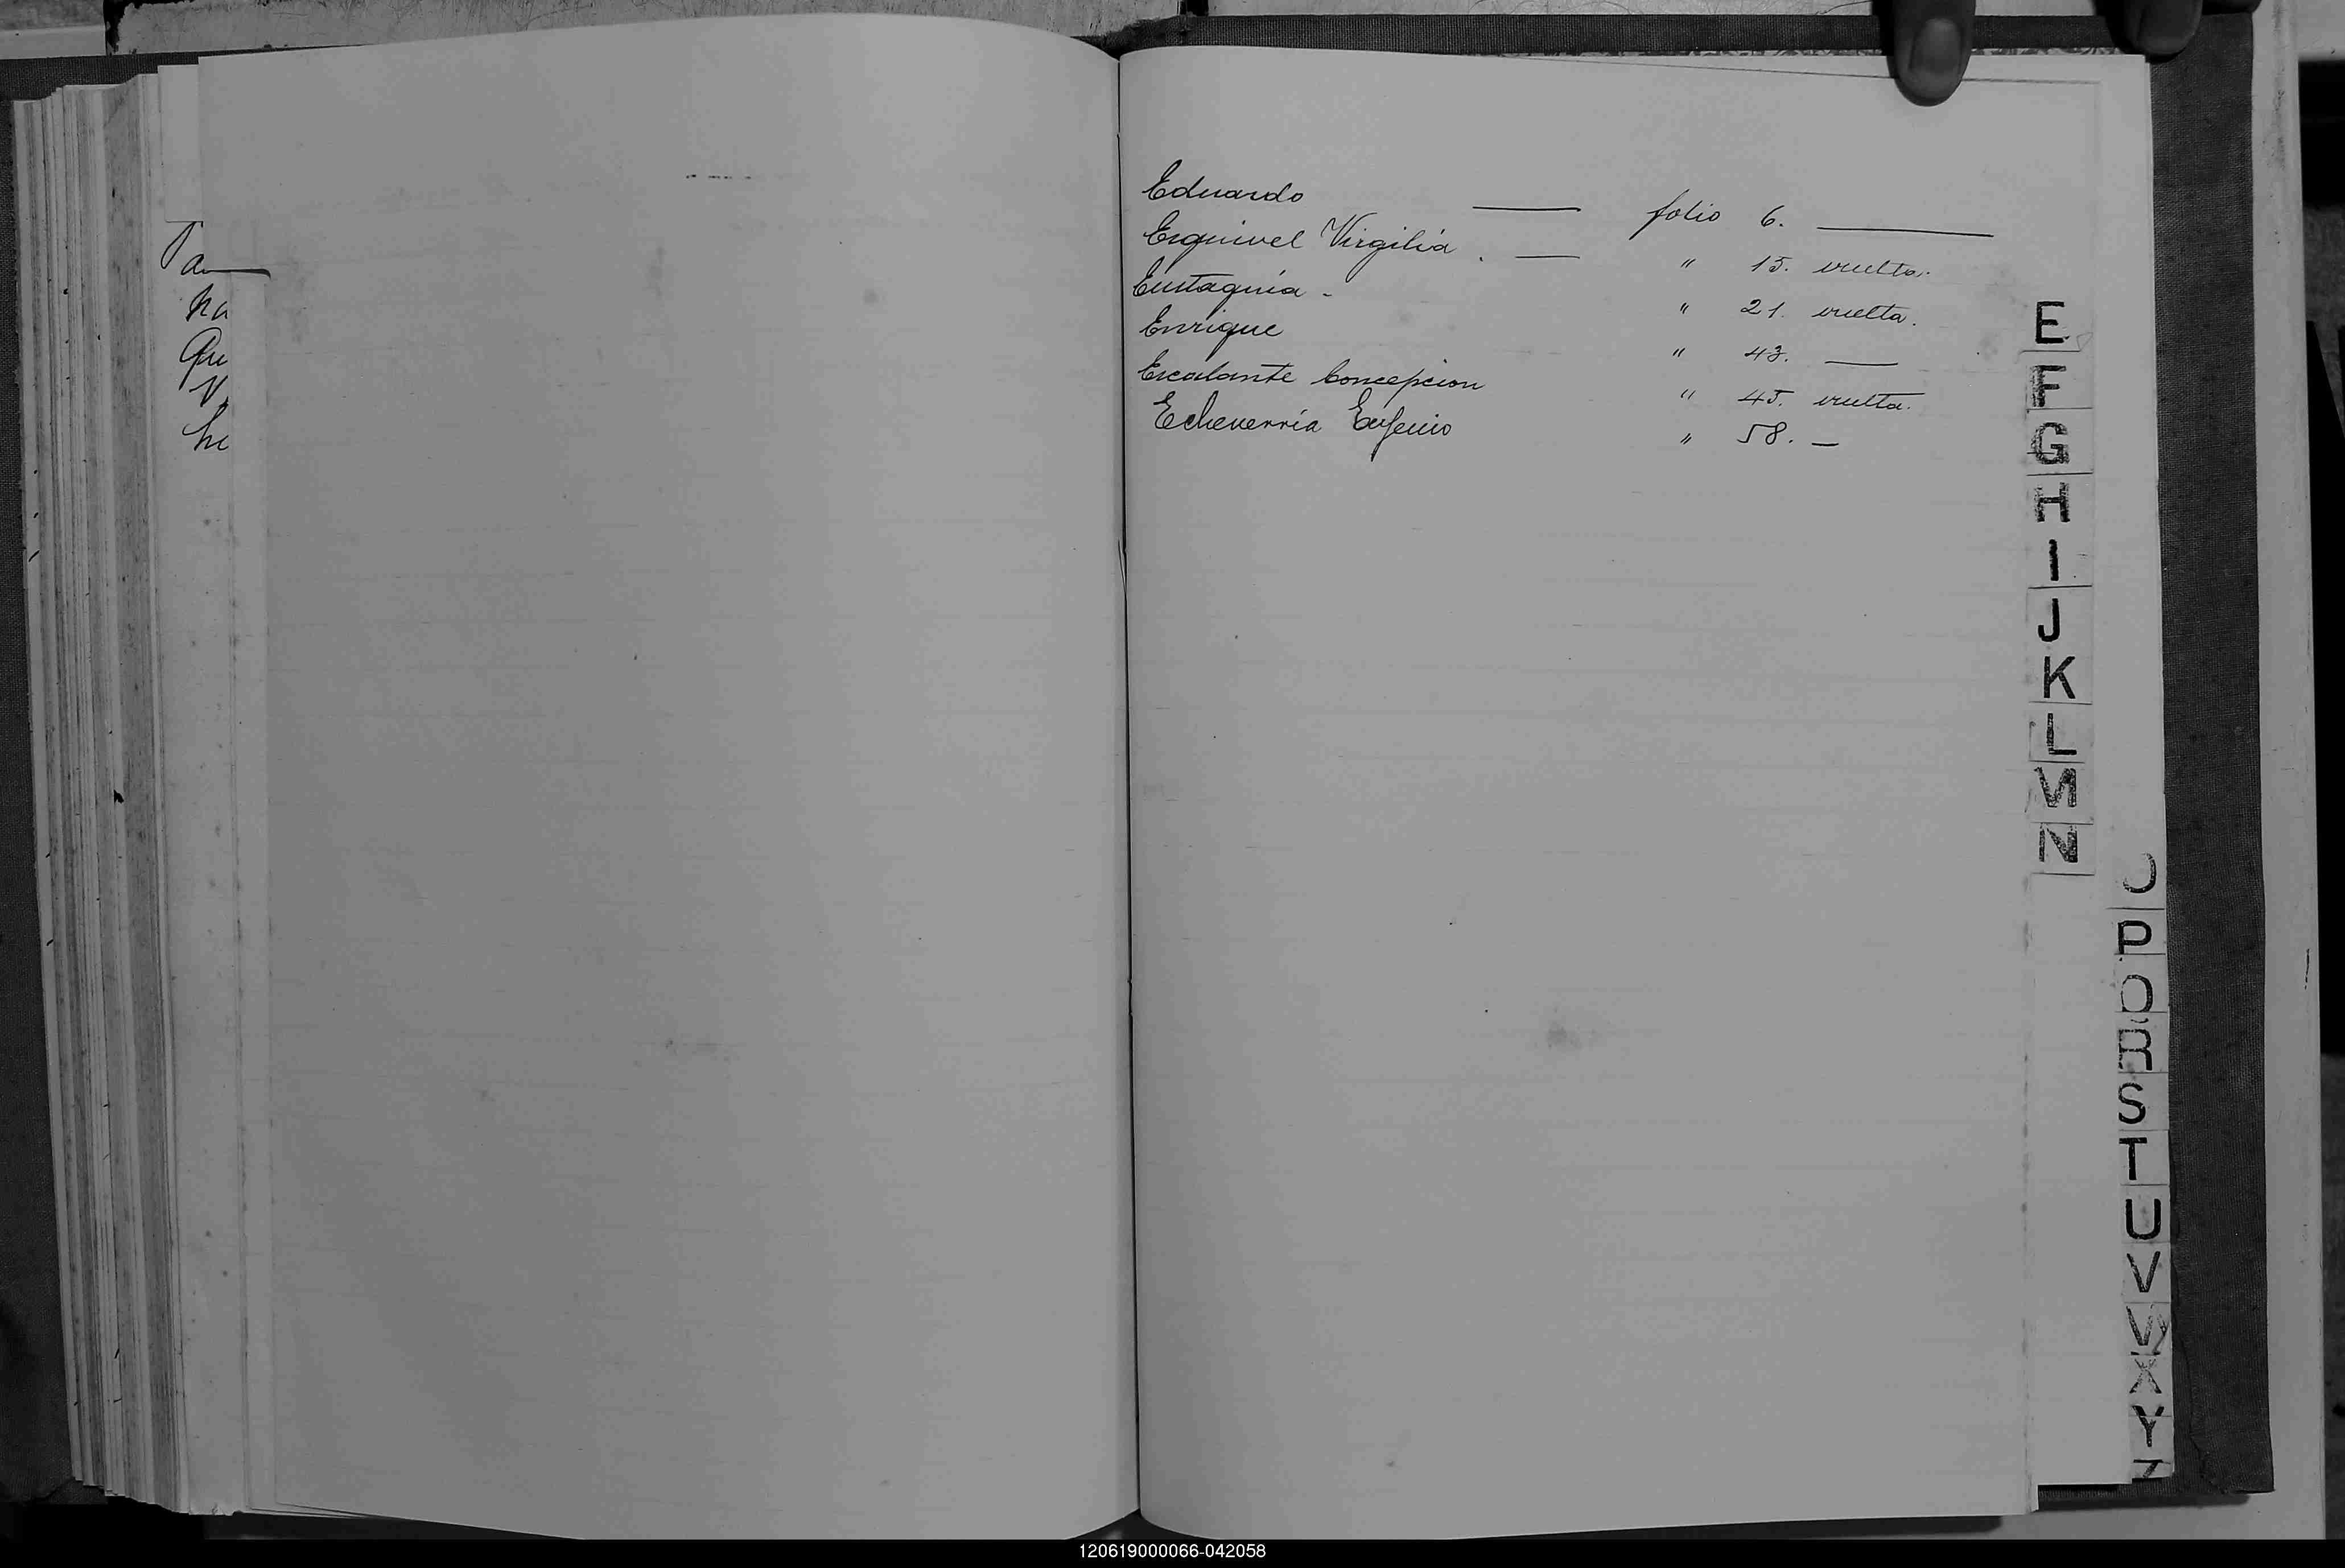 Eduardo ——— folio 6. ———
Esquivel Virgilia . — " 15. vuelta.
Eustaquia - " 21. vuelta.
Enrique " 43. —
Escalante Concepcion " 45. vuelta.
Echeverría Eugenio " 58. —
E
F
G
H
I
J
K
L
M
N
O
P
Q
R
S
T
U
V
W
X
Y
Z
120619000066-042058